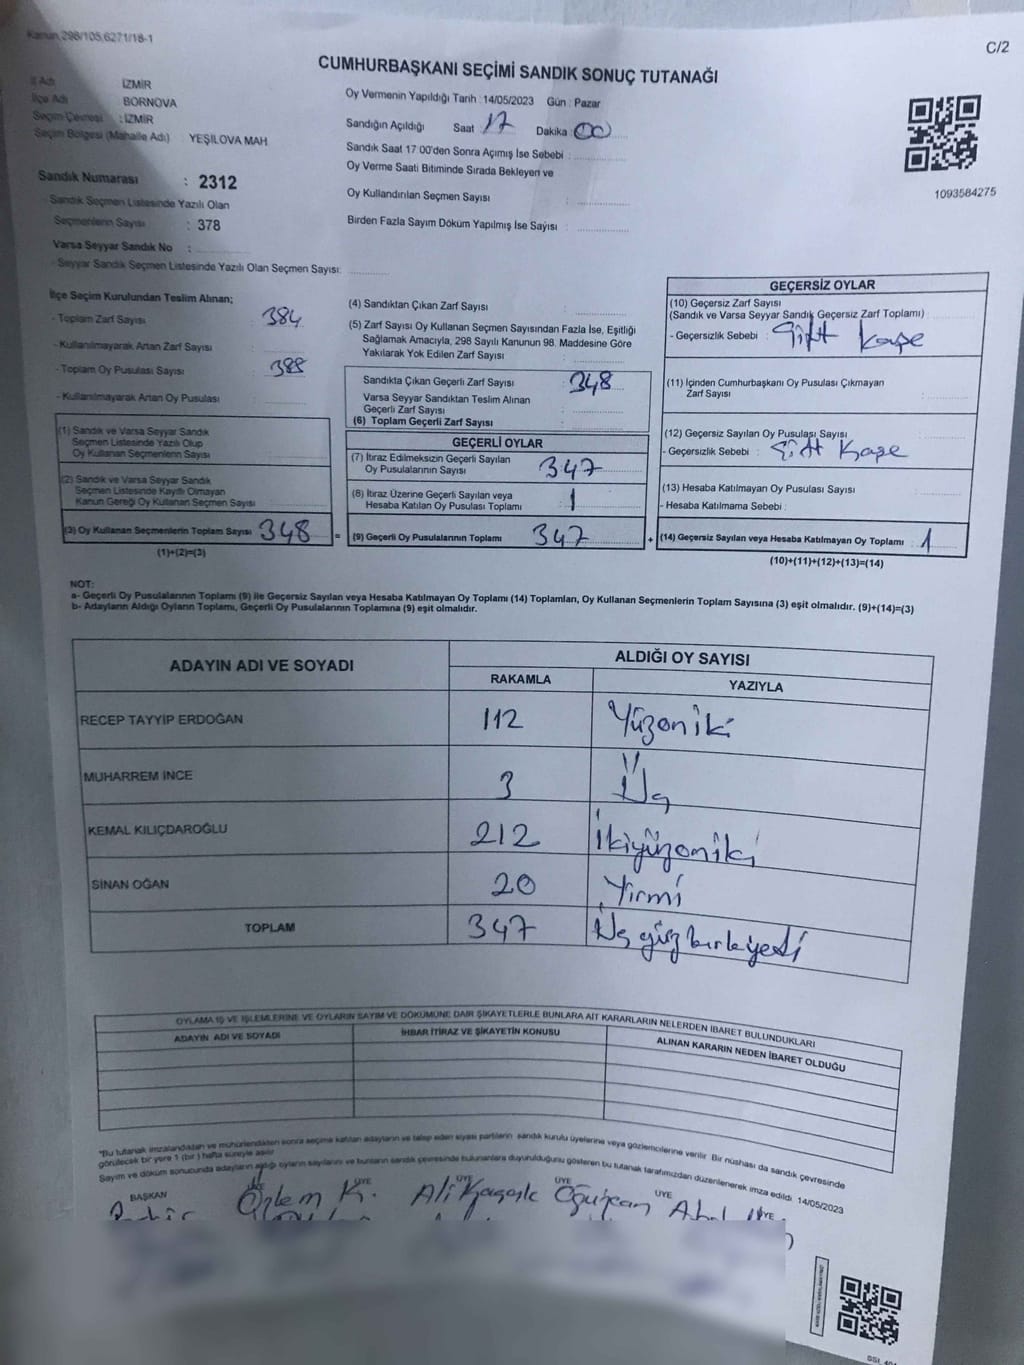 Kanun,298/105,6271/18-1
C/2
CUMHURBAŞKANI SEÇİMİ SANDIK SONUÇ TUTANAĞI
İl Adı İZMİR
İlçe Adı BORNOVA
Seçim Çevresi : İZMİR
Seçim Bölgesi (Mahalle Adı) YEŞİLOVA MAH
Sandık Numarası : 2312
- Sandık Seçmen Listesinde Yazılı Olan
Seçmenlerin Sayısı : 378
Varsa Seyyar Sandık No :
- Seyyar Sandık Seçmen Listesinde Yazılı Olan Seçmen Sayısı:
Oy Vermenin Yapıldığı Tarih : 14/05/2023 Gün : Pazar
Sandığın Açıldığı Saat : 17 Dakika : 00
Sandık Saat 17 00'den Sonra Açımış İse Sebebi :
Oy Verme Saati Bitiminde Sırada Bekleyen ve
Oy Kullandırılan Seçmen Sayısı :
Birden Fazla Sayım Döküm Yapılmış İse Sayısı :
1093584275
İlçe Seçim Kurulundan Teslim Alınan;
- Toplam Zarf Sayısı : 384
- Kullanılmayarak Artan Zarf Sayısı :
- Toplam Oy Pusulası Sayısı : 388
- Kullanılmayarak Artan Oy Pusulası :
(1) Sandık ve Varsa Seyyar Sandık
Seçmen Listesinde Yazılı Olup
Oy Kullanan Seçmenlerin Sayısı :
(2) Sandık ve Varsa Seyyar Sandık
Seçmen Listesinde Kayıtlı Olmayan
Kanun Gereği Oy Kullanan Seçmen Sayısı :
(3) Oy Kullanan Seçmenlerin Toplam Sayısı 348
(1)+(2)=(3)
(4) Sandıktan Çıkan Zarf Sayısı :
(5) Zarf Sayısı Oy Kullanan Seçmen Sayısından Fazla İse, Eşitliği
Sağlamak Amacıyla, 298 Sayılı Kanunun 98. Maddesine Göre
Yakılarak Yok Edilen Zarf Sayısı :
Sandıkta Çıkan Geçerli Zarf Sayısı : 348
Varsa Seyyar Sandıktan Teslim Alınan
Geçerli Zarf Sayısı :
(6) Toplam Geçerli Zarf Sayısı :
GEÇERLİ OYLAR
(7) İtiraz Edilmeksizin Geçerli Sayılan
Oy Pusulalarının Sayısı : 347
(8) İtiraz Üzerine Geçerli Sayılan veya
Hesaba Katılan Oy Pusulası Toplamı : 1
= (9) Geçerli Oy Pusulalarının Toplamı 347 +
GEÇERSİZ OYLAR
(10) Geçersiz Zarf Sayısı
(Sandık ve Varsa Seyyar Sandık Geçersiz Zarf Toplamı) :
- Geçersizlik Sebebi : Çift Kaşe
(11) İçinden Cumhurbaşkanı Oy Pusulası Çıkmayan
Zarf Sayısı :
(12) Geçersiz Sayılan Oy Pusulası Sayısı :
- Geçersizlik Sebebi : Çift Kaşe
(13) Hesaba Katılmayan Oy Pusulası Sayısı :
- Hesaba Katılmama Sebebi :
(14) Geçersiz Sayılan veya Hesaba Katılmayan Oy Toplamı : 1
(10)+(11)+(12)+(13)=(14)
NOT:
a- Geçerli Oy Pusulalarının Toplamı (9) ile Geçersiz Sayılan veya Hesaba Katılmayan Oy Toplamı (14) Toplamları, Oy Kullanan Seçmenlerin Toplam Sayısına (3) eşit olmalıdır. (9)+(14)=(3)
b- Adayların Aldığı Oyların Toplamı, Geçerli Oy Pusulalarının Toplamına (9) eşit olmalıdır.
ADAYIN ADI VE SOYADI ALDIĞI OY SAYISI
RAKAMLA YAZIYLA
RECEP TAYYİP ERDOĞAN 112 Yüzoniki
MUHARREM İNCE 3 Üç
KEMAL KILIÇDAROĞLU 212 İkiyüzoniki
SİNAN OĞAN 20 Yirmi
TOPLAM 347 Üçyüzkırkyedi
OYLAMA İŞ VE İŞLEMLERİNE VE OYLARIN SAYIM VE DÖKÜMÜNE DAİR ŞİKAYETLERLE BUNLARA AİT KARARLARIN NELERDEN İBARET BULUNDUKLARI
ADAYIN ADI VE SOYADI İHBAR İTİRAZ VE ŞİKAYETİN KONUSU ALINAN KARARIN NEDEN İBARET OLDUĞU
*Bu tutanak imzalandıktan ve mühürlendikten sonra seçime katılan adayların ve talep eden siyasi partilerin sandık kurulu üyelerine veya gözlemcilerine verilir. Bir nüshası da sandık çevresinde
görülecek bir yere 1 (bir) hafta süreyle asılır
Sayım ve döküm sonucunda adayların aldığı oyların sayılarını ve bunların sandık çevresinde bulunanlara duyurulduğunu gösteren bu tutanak tarafımızdan düzenlenerek imza edildi. 14/05/2023
BAŞKAN ÜYE ÜYE ÜYE ÜYE ÜYE
Özlem K. Ali Oğuzcan